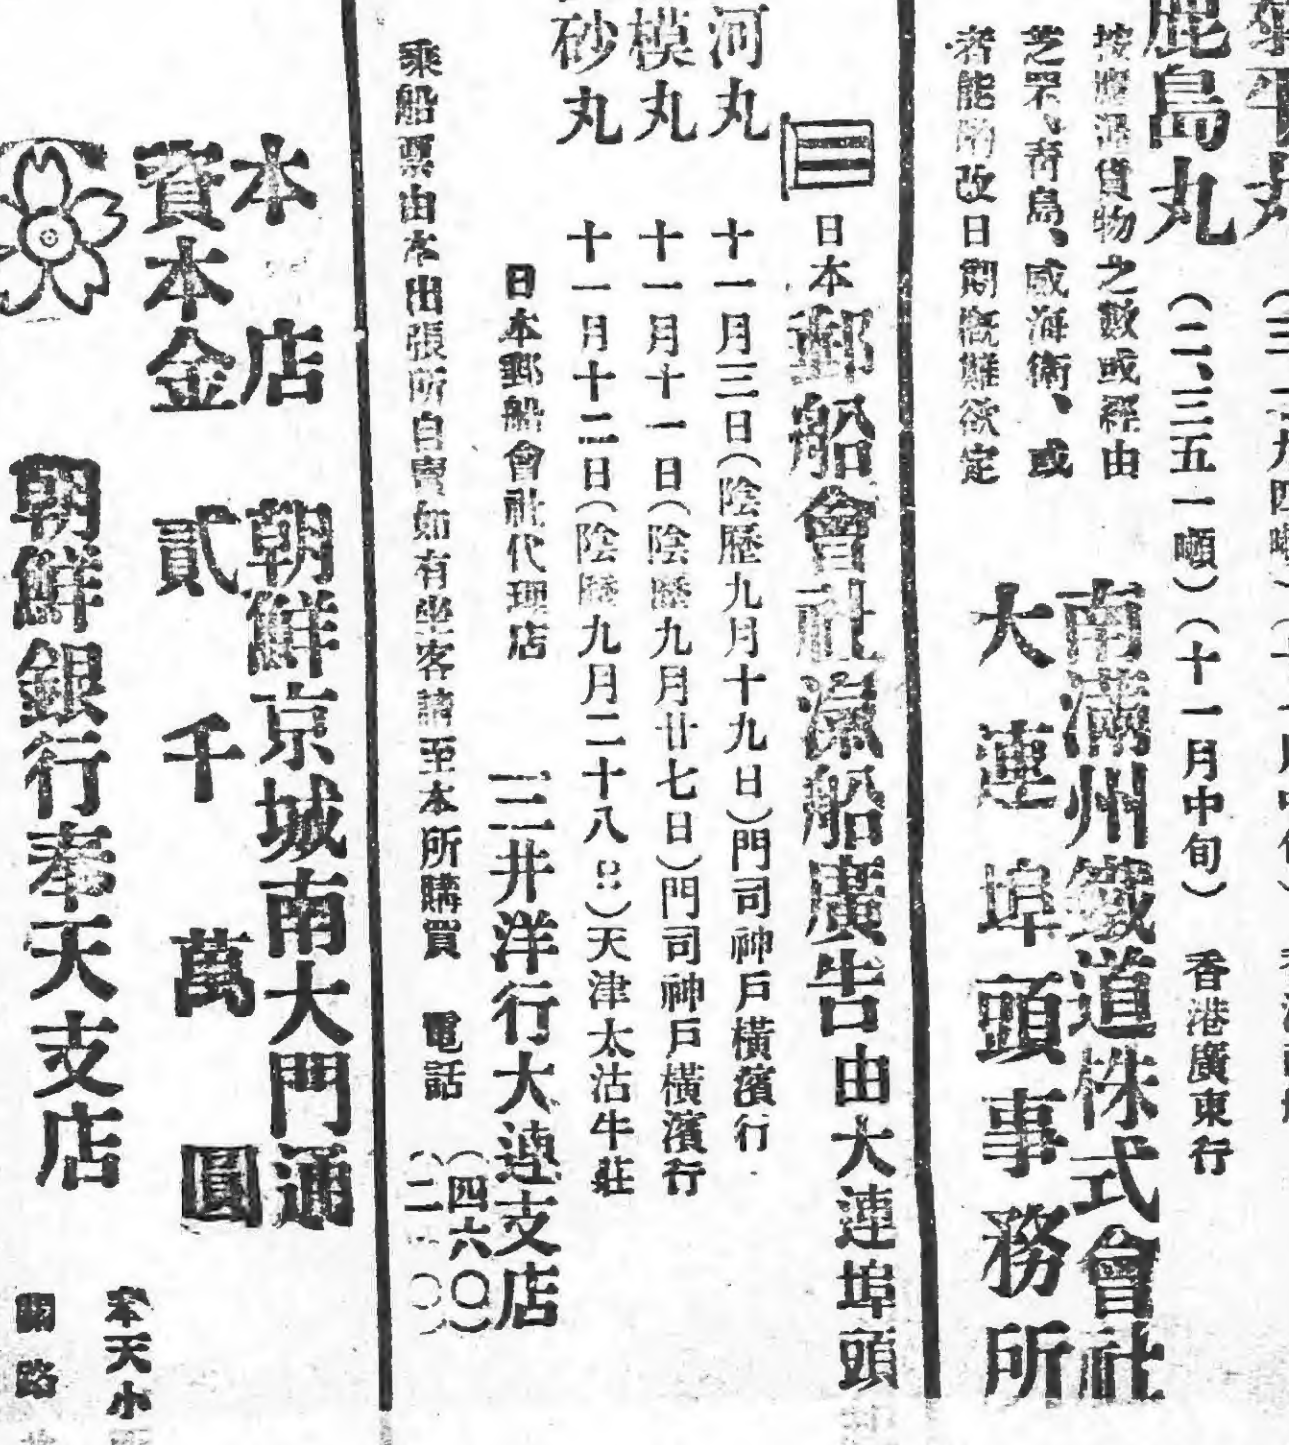 鹿島丸 (二、三五一噸) (十一月中旬) 香港廣東行
貨物之數或經由
芝罘、靑島、威海衛、或
者能改日期概難欲定
南滿州鐵道株式會社
大連埠頭事務所
日本郵船會社滊船廣告由大連埠頭
河丸 十一月三日(陰歷九月十九日)門司神戶橫濱行
模丸 十一月十一日(陰歷九月廿七日)門司神戶橫濱行
砂丸 十一月十二日(陰歷九月二十八日)天津太沽牛莊
日本郵船會社代理店 三井洋行大連支店
乘船票由本出張所自賣如有坐客請至本所購買 電話 (四六〇)
本店 朝鮮京城南大門通
資本金 貳千萬圓
朝鮮銀行奉天支店
奉天小